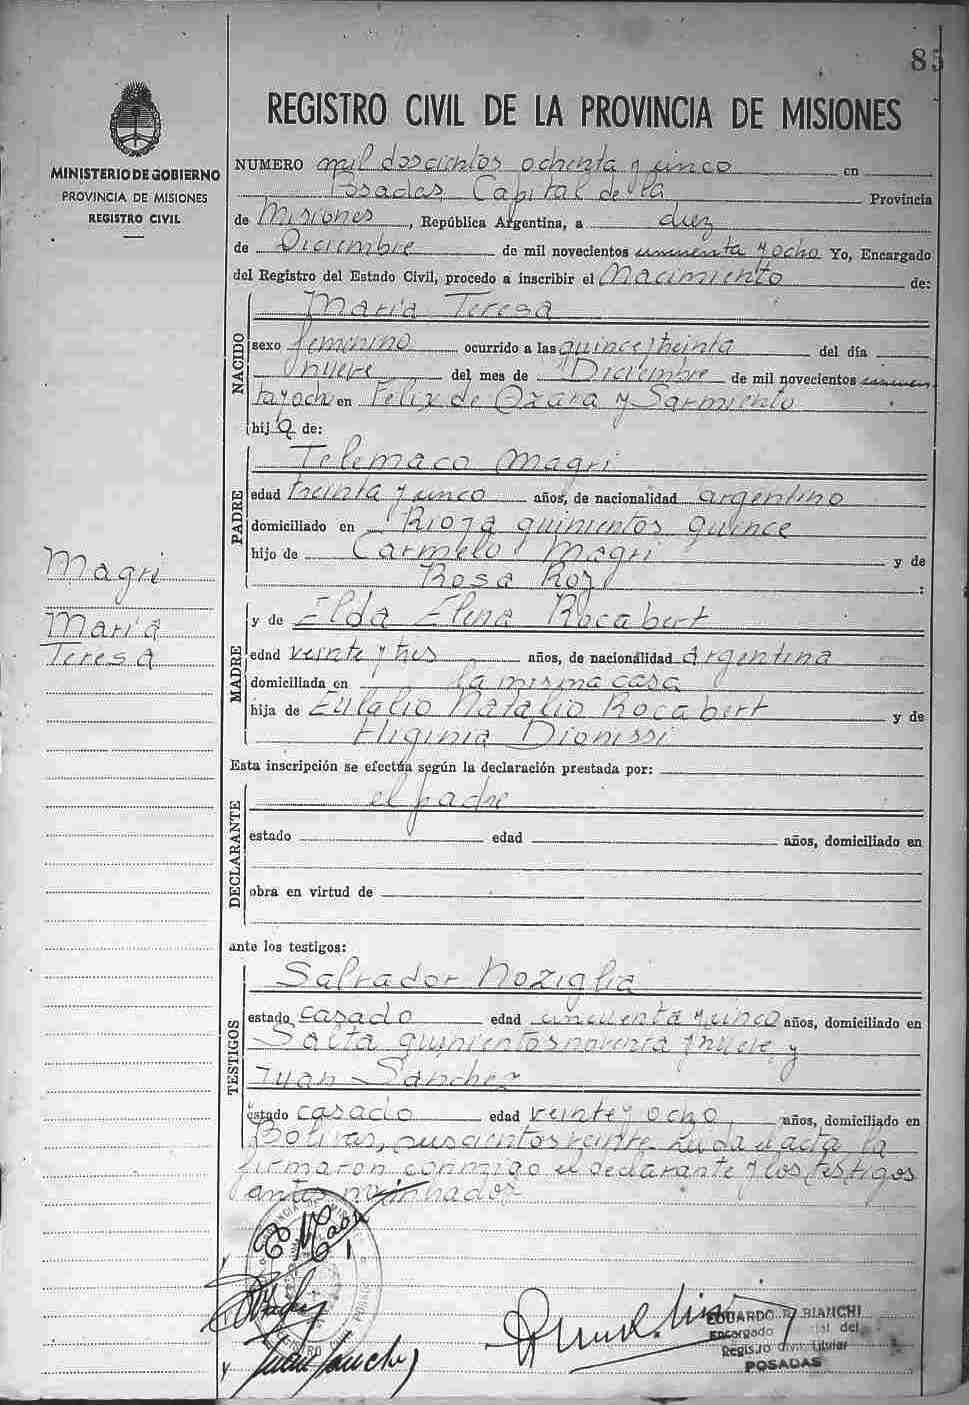 85
REGISTRO CIVIL DE LA PROVINCIA DE MISIONES
MINISTERIO DE GOBIERNO
PROVINCIA DE MISIONES
REGISTRO CIVIL
NUMERO mil doscientos ochenta y cinco en
Posadas, Capital de la Provincia
de Misiones, República Argentina, a diez
de Diciembre de mil novecientos cincuenta y ocho Yo, Encargado
del Registro del Estado Civil, procedo a inscribir el Nacimiento de:
NACIDO
María Teresa
sexo femenino ocurrido a las quince y treinta del día
nueve del mes de Diciembre de mil novecientos cincuen
ta y ocho en Felix de Azara y Sarmiento
hija de:
PADRE
Telemaco Magri
edad treinta y cinco años, de nacionalidad argentino
domiciliado en Rioja quinientos quince
hijo de Carmelo Magri y de
Rosa
Magri
María
Teresa
MADRE
y de Elda Elena Rocabert
edad veinte y tres años, de nacionalidad argentina
domiciliada en la misma casa
hija de Eulalio Natalio Rocabert y de
Higinia Dionissi
Esta inscripción se efectúa según la declaración prestada por:
DECLARANTE
el padre
estado edad años, domiciliado en
obra en virtud de
ante los testigos:
TESTIGOS
Salvador Noziglia
estado casado edad cincuenta y cinco años, domiciliado en
Salta quinientos noventa y nueve y
Juan Sanchez
estado casado edad veinte y ocho años, domiciliado en
Bolivar, veinte. Leida el acta la
firmaron conmigo el declarante y los testigos
antes
Juan Sanchez
EDUARDO R. BIANCHI
Encargado del
Registro Civil Titular
POSADAS